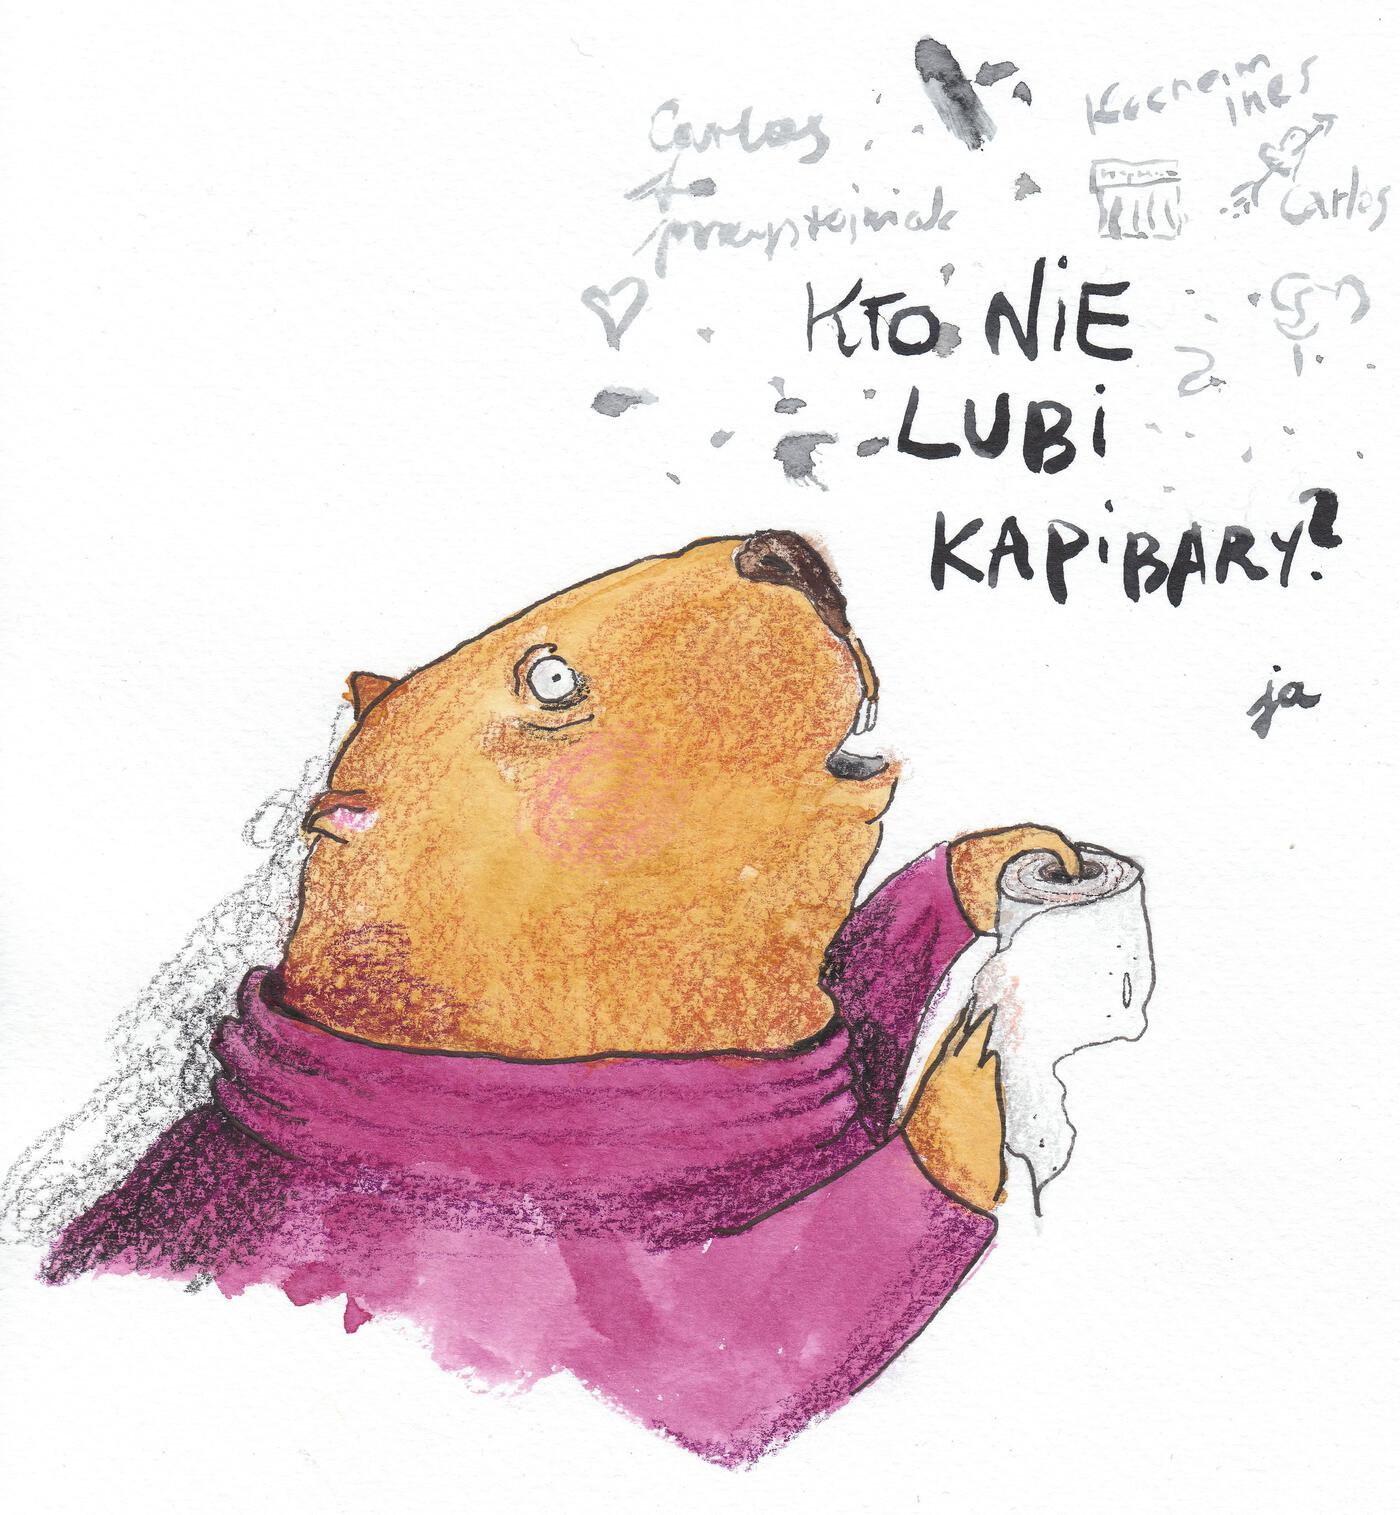 Carlos
to
przystojniak
Kocham
Ines
Carlos
KTO NiE
LUBi
KAPiBARY?
ja